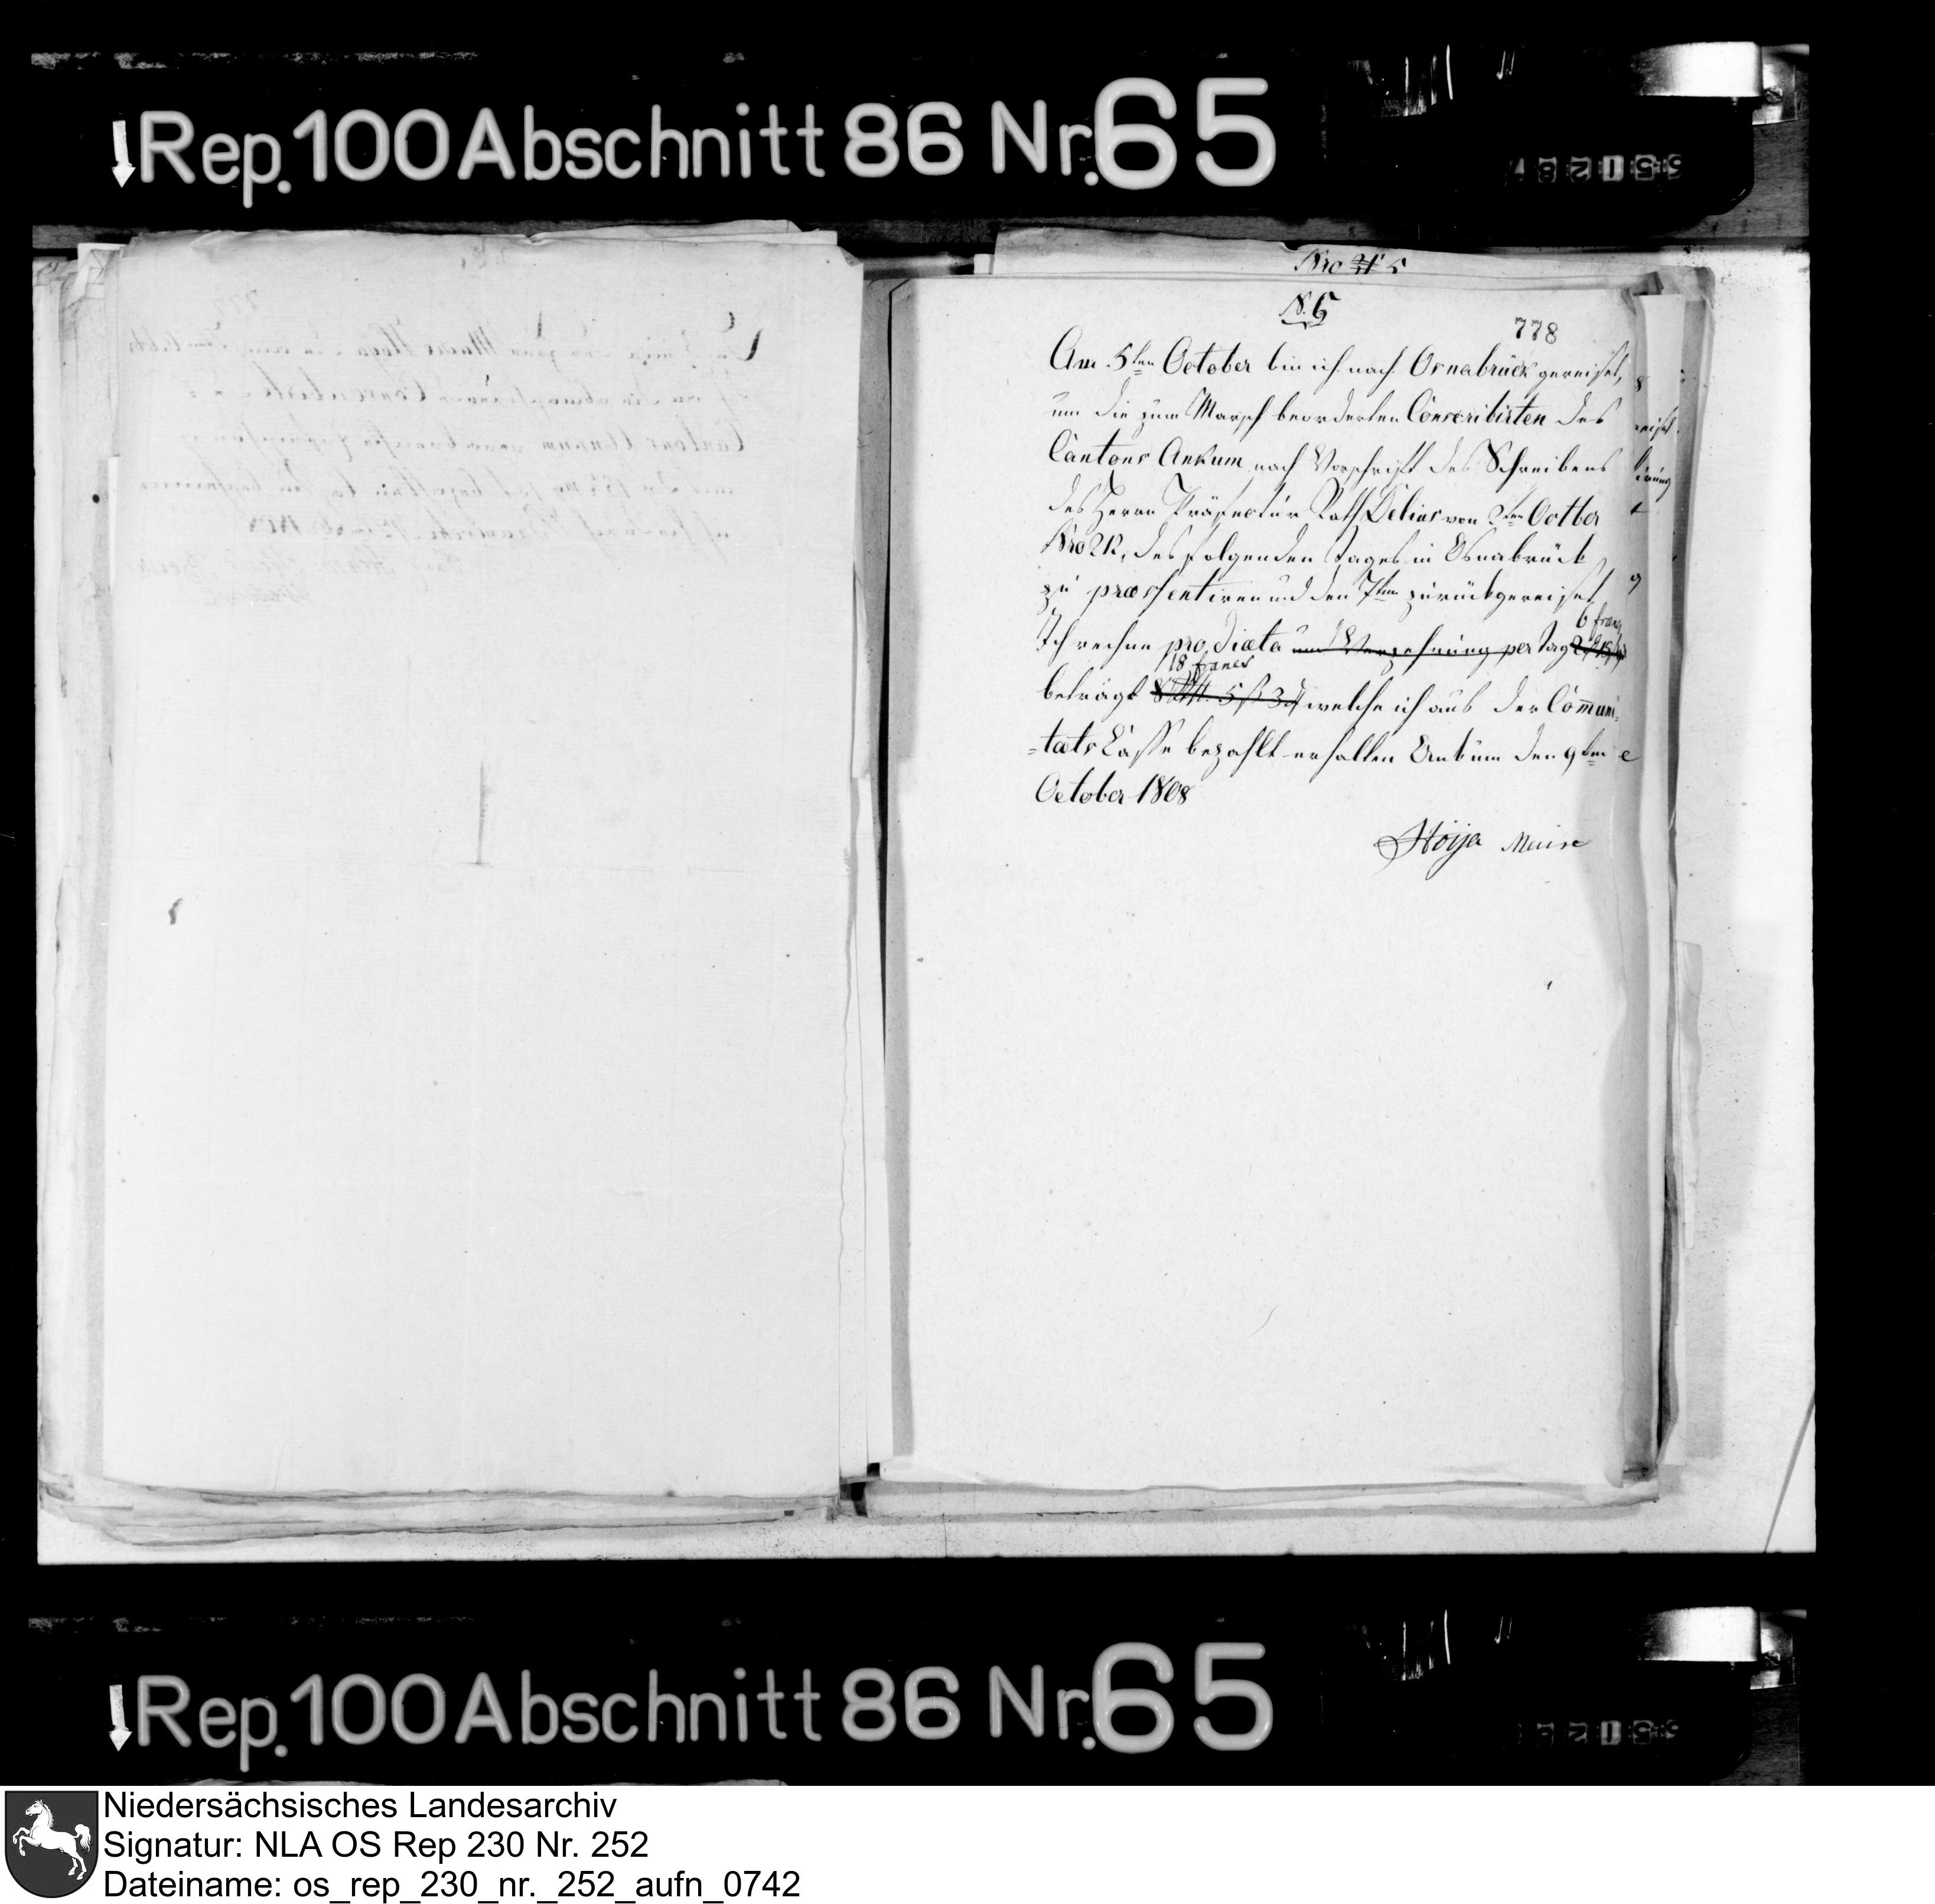 Rep. 100 Abschnitt 86 Nr. 65
Nro 5
N. 6
778
Am 5ten October bin ich nach Osnabrück gereiset,
um die zum Marsch beorderten Conscribirten des
Cantons Ankum nach Vorschrift des Schreibens
des Herrn Präfectur Rath Delius von 2ten Octber
Nro 212, des folgenden Tages in Osnabrück
zu præsentiren und den 7ten zurückgereiset
6 francs
Ich rechne pro Diæta und Verzehrung per Tag
18 francs
beträgt welche ich aus der Communi-
-tæts Casse bezahlt erhalten Ankum den 9ten
October 1808
Höija Maire
Rep. 100 Abschnitt 86 Nr. 65
Niedersächsisches Landesarchiv
Signatur: NLA OS Rep 230 Nr. 252
Dateiname: os_rep_230_nr._252_aufn_0742